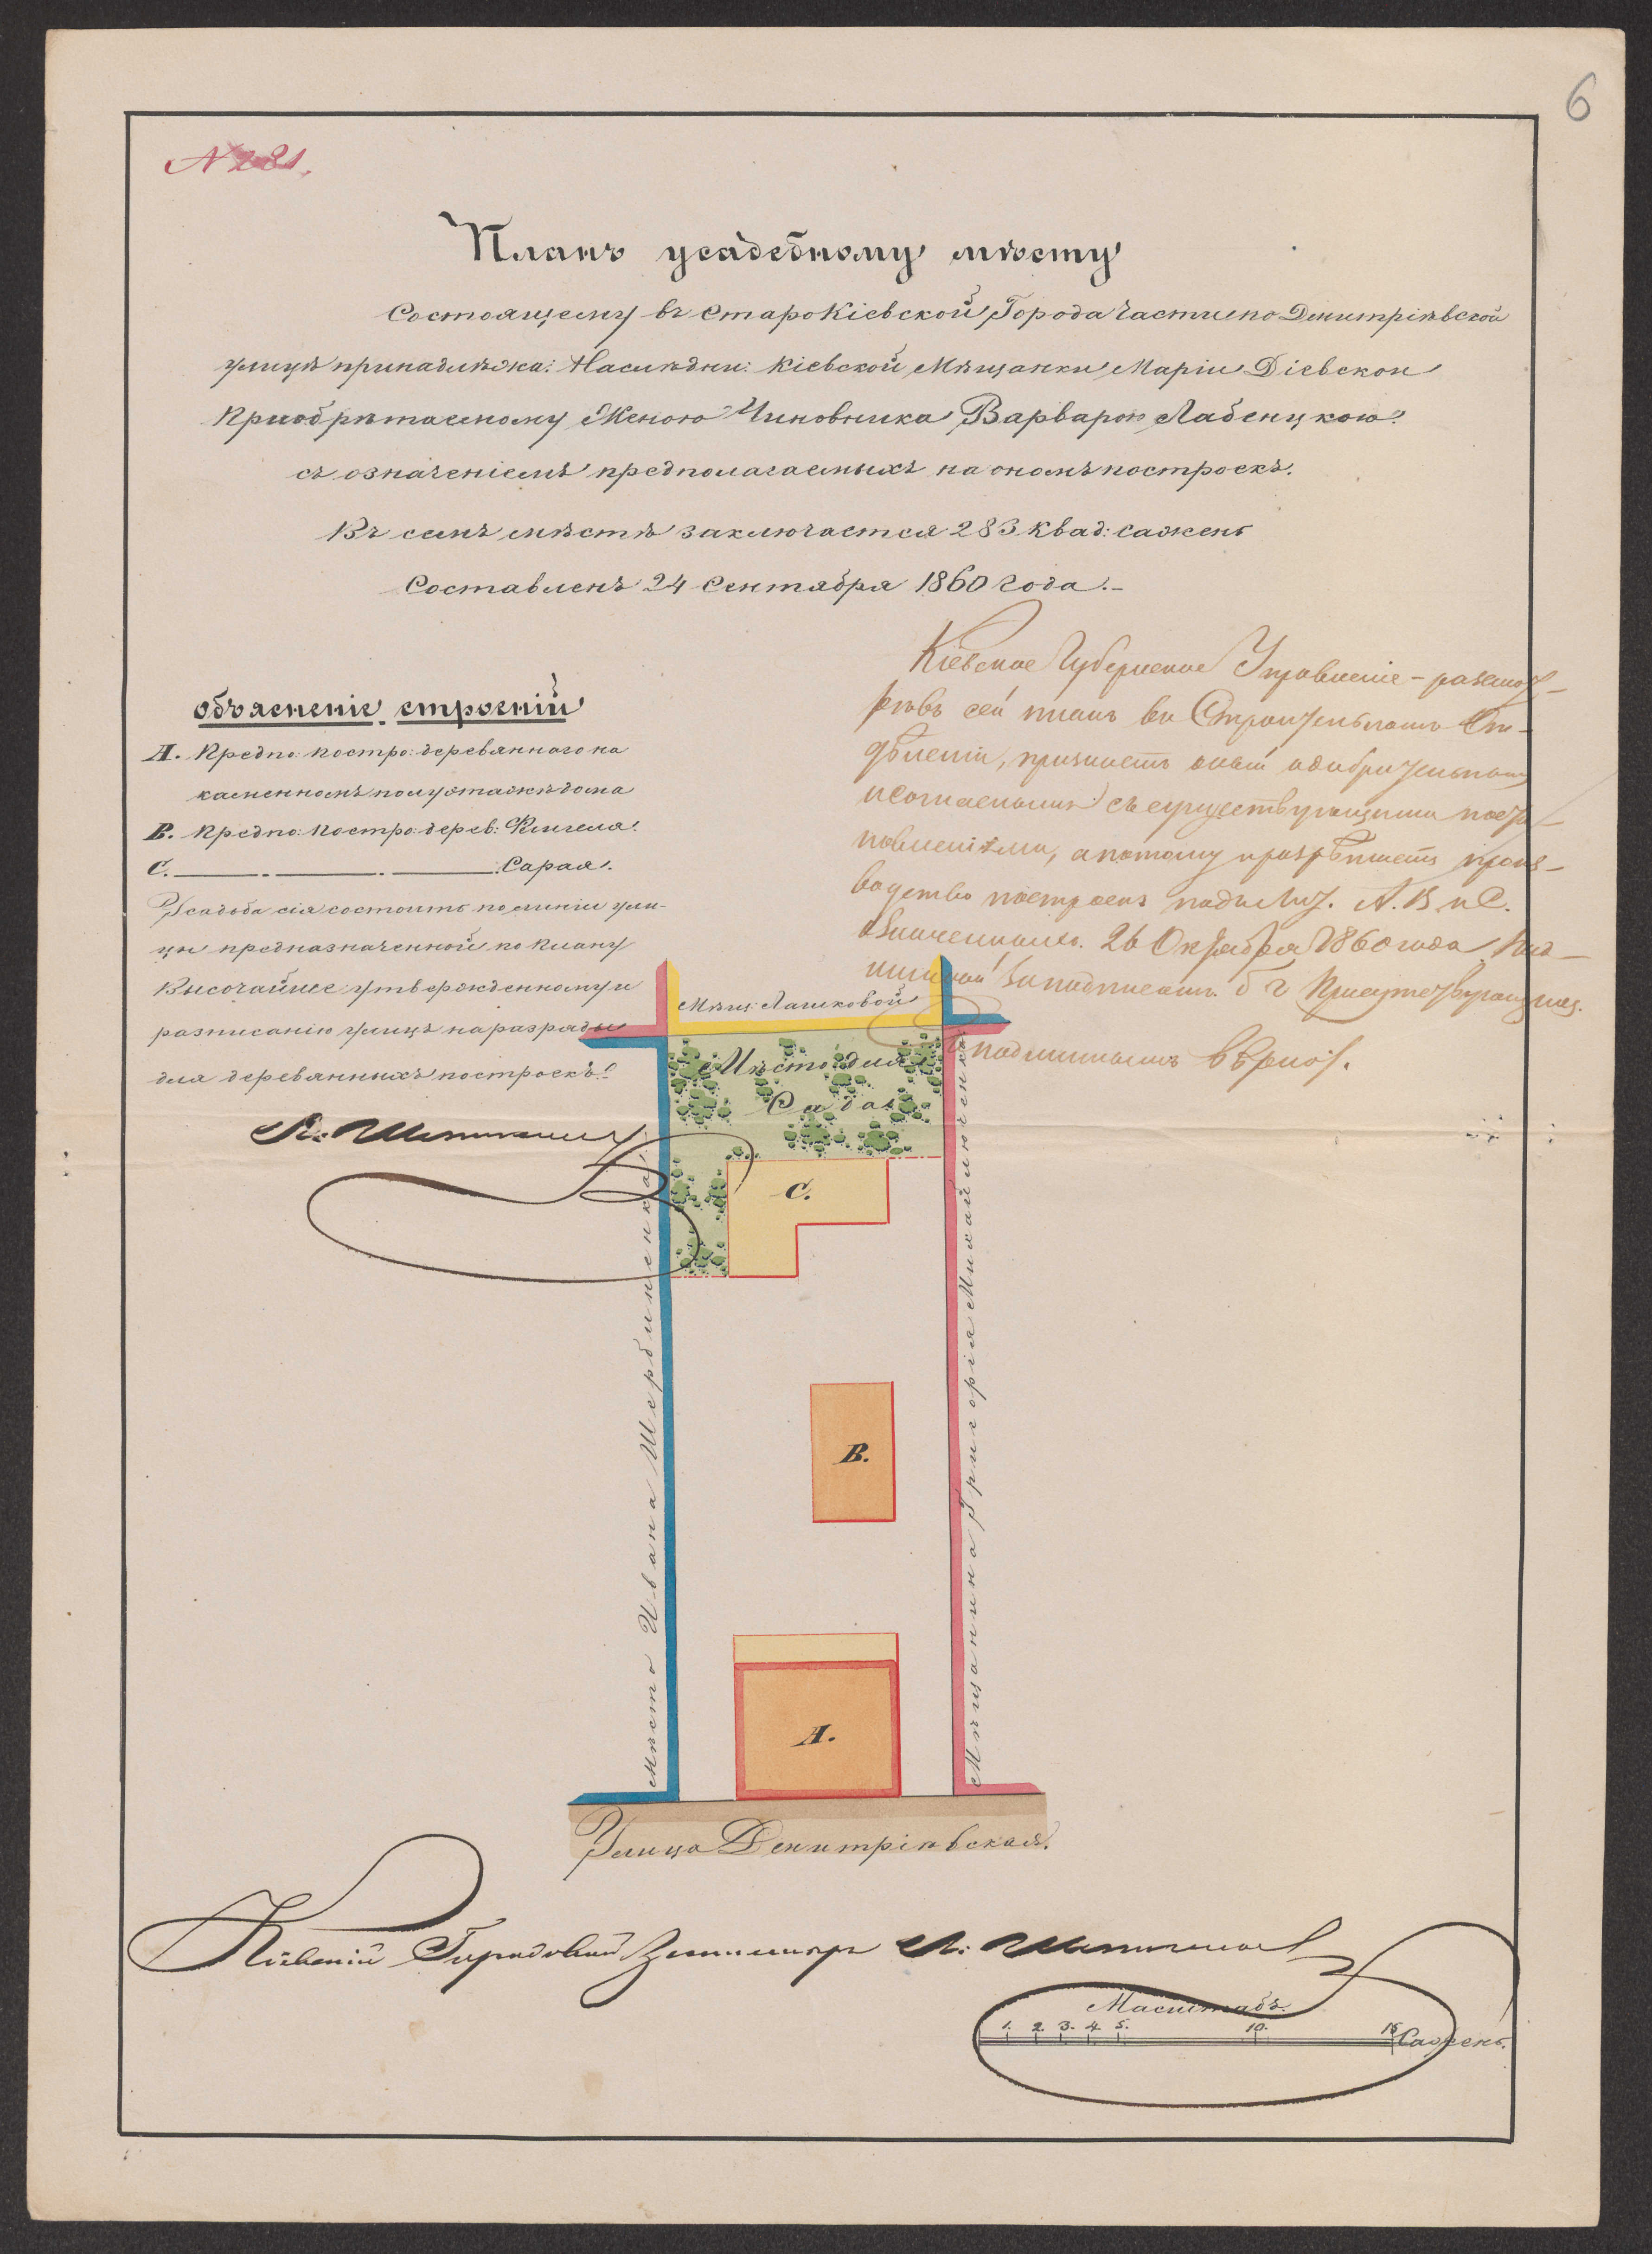 6
N 281.
Планъ усадебному мѣсту
Состоящему въ СтароКіевской Города части по Димитріѣвской
улицѣ принадлѣжа: Наслѣдни: Кіевской Мѣщанки Маріи Діевской
Пріобрѣтаемому Женою Чиновника Варварою Лабенцкою.
съ означеніемъ предполагаемыхъ на ономъ построекъ.
Въ семъ мѣстѣ заключается 283 квад: сажень
Составленъ 24 Сентября 1860 года.-
Кіевское Губернское Управленіе - разсмот-
рѣвъ сей планъ въ Строительномъ От-
дѣленіи, признаетъ оный одобрительнымъ
и согласнымъ съ существующими поста-
новленіями, а потому и разрѣшаетъ произ-
водство построекъ подъ лит. А. В и С.
означенныхъ. 26 Октября 1860 года. Под-
линный за подписомъ Присутствующихъ.
Съ подлиннымъ вѣрно.
объясненіе строеній
А. Предпо: постро: деревяннаго на
каменномъ полуэтажѣ дома
В. Предпо: постро: дерев: Флигеля.
С. Сарая.
Усадьба сія состоитъ по линіи ули-
цы предназначенной по плану
Высочайше утвержденному и
разписанію улицъ на разряды
для деревянныхъ построекъ.
Мѣщ: Лашковой
Мѣсто для
Сада
С.
В.
А.
Мѣсто Ивана Щербиненка
Мѣщанина Григорія Михайлюченка
Улица Димитріѣвская.
Кіевскій Городовый Землемѣръ
Масштабъ.
1. 2. 3. 4. 5. 10. 15 Сажень.